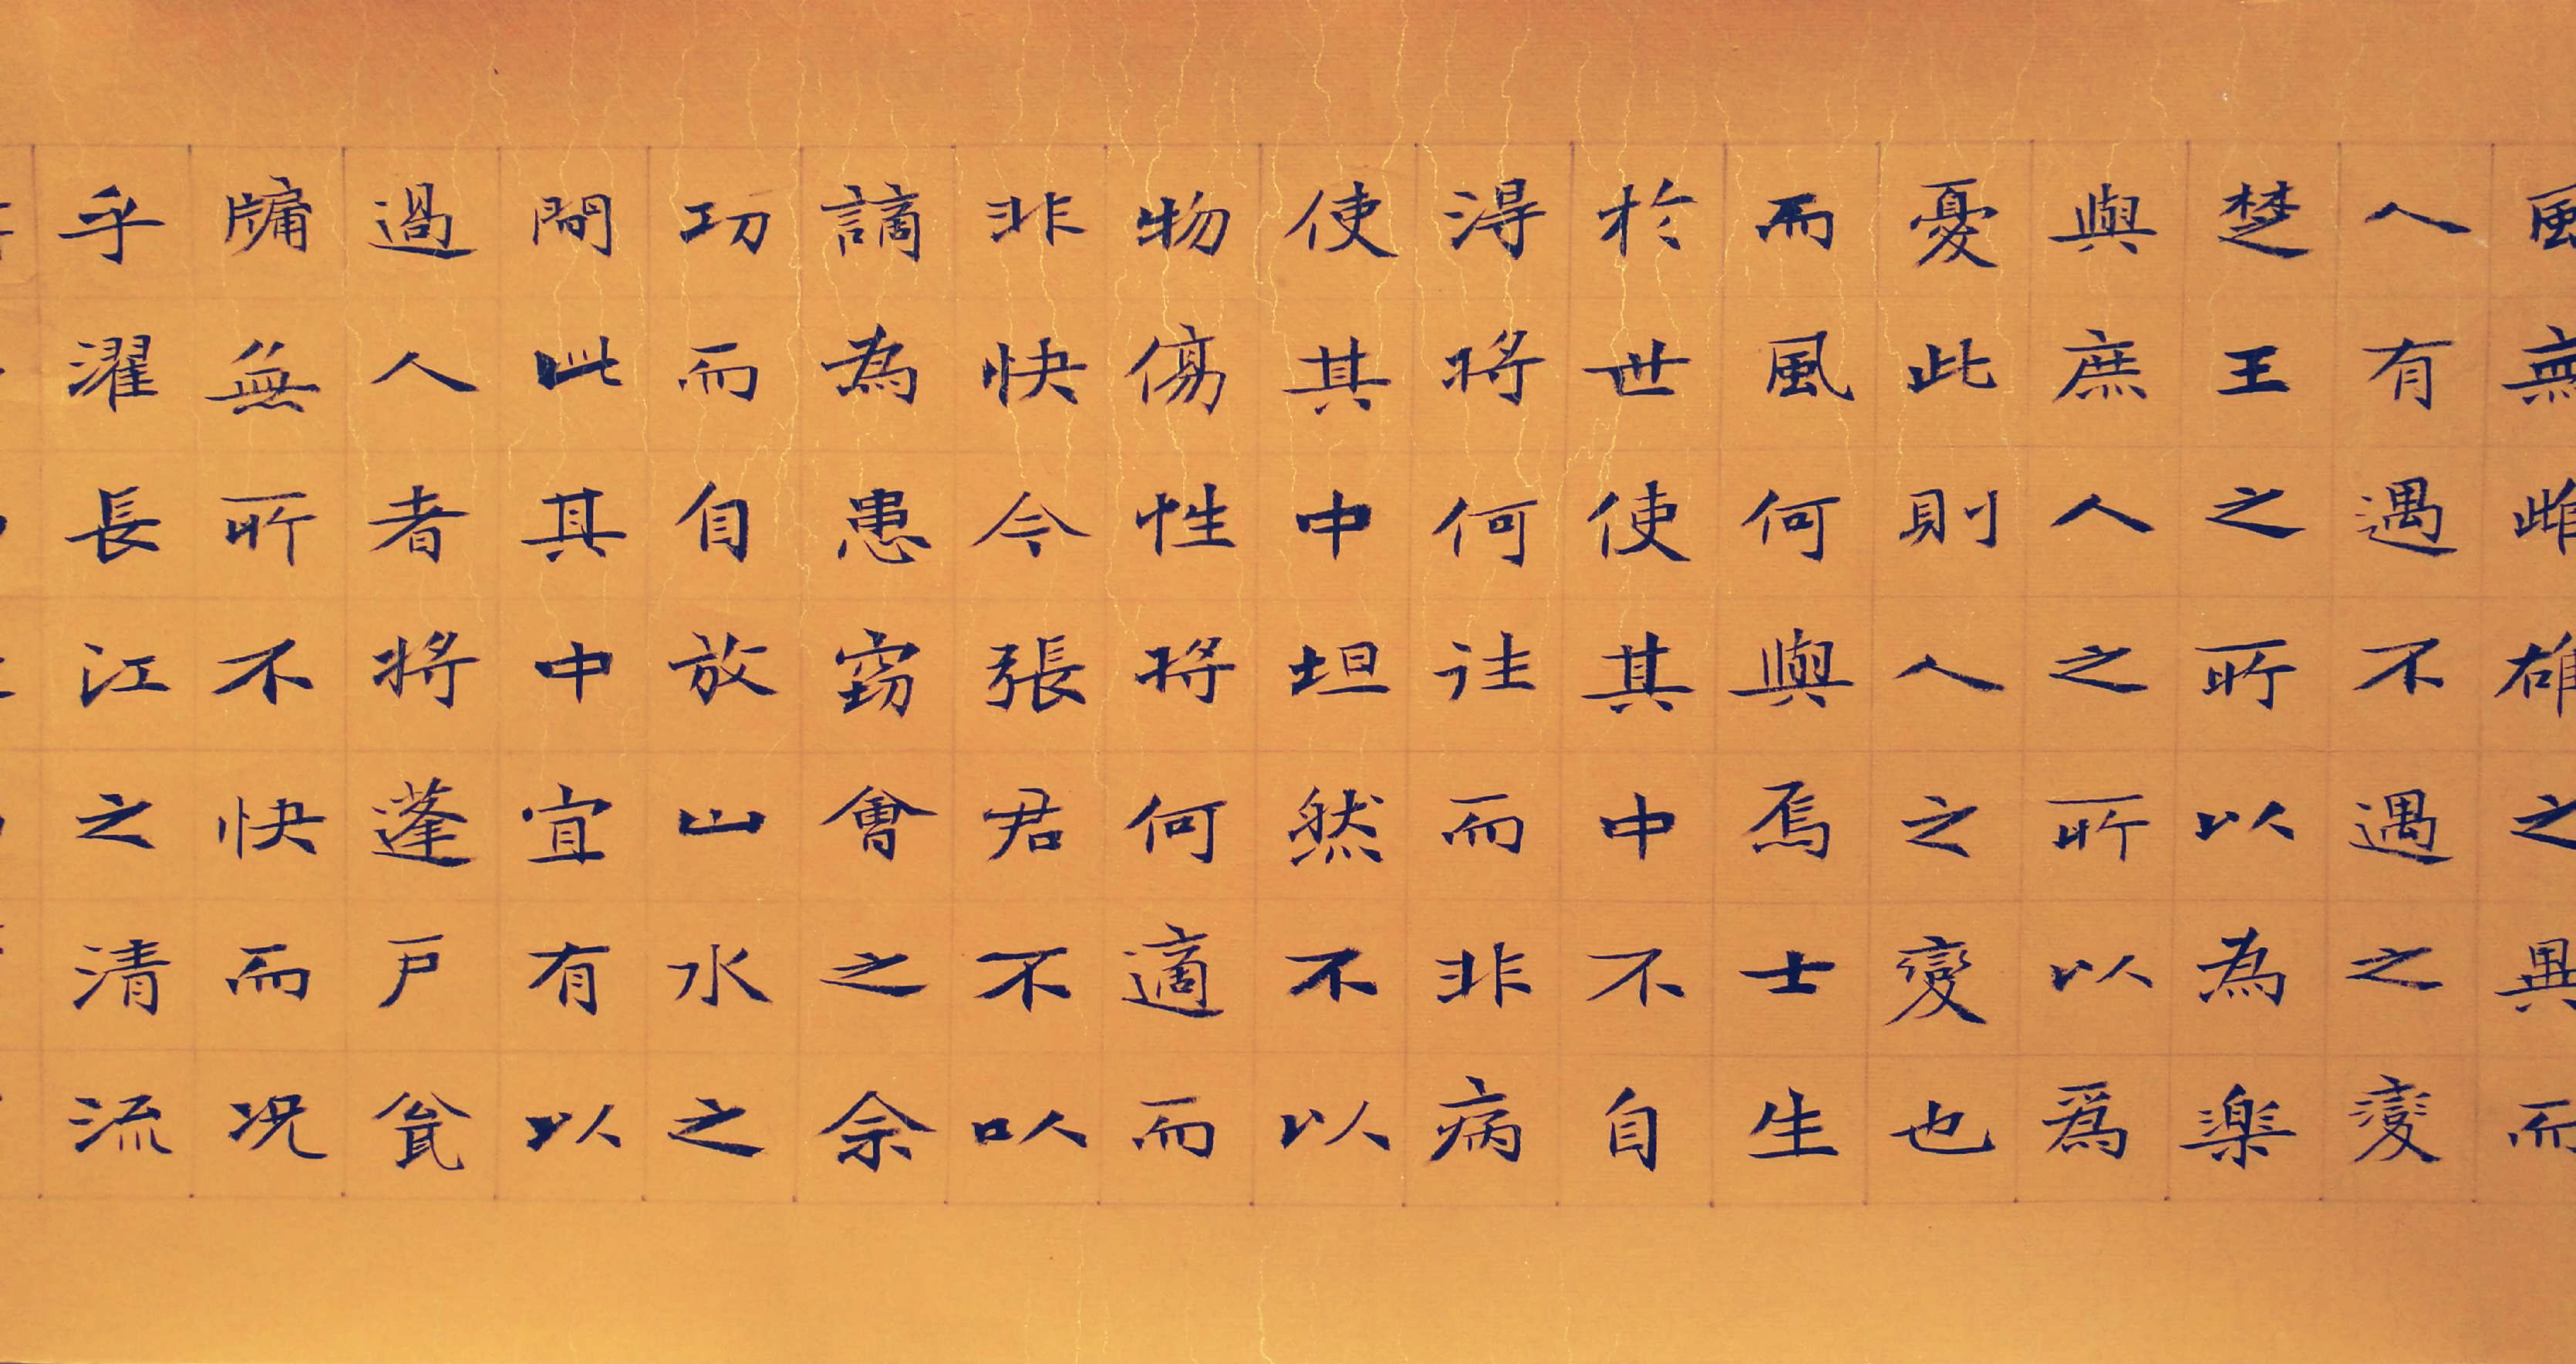 風無雌雄之異而
人有遇不遇之變
楚王之所以為楽
與庶人之所以爲
憂此則人之變也
而風何與焉士生
於世使其中不自
得将何往而非病
使其中坦然不以
物傷性将何適而
非快今張君不以
謫為患窃會之余
功而自放山水之
間此其中宜有以
過人者将蓬戸瓮
牖無所不快而况
乎濯長江之清流